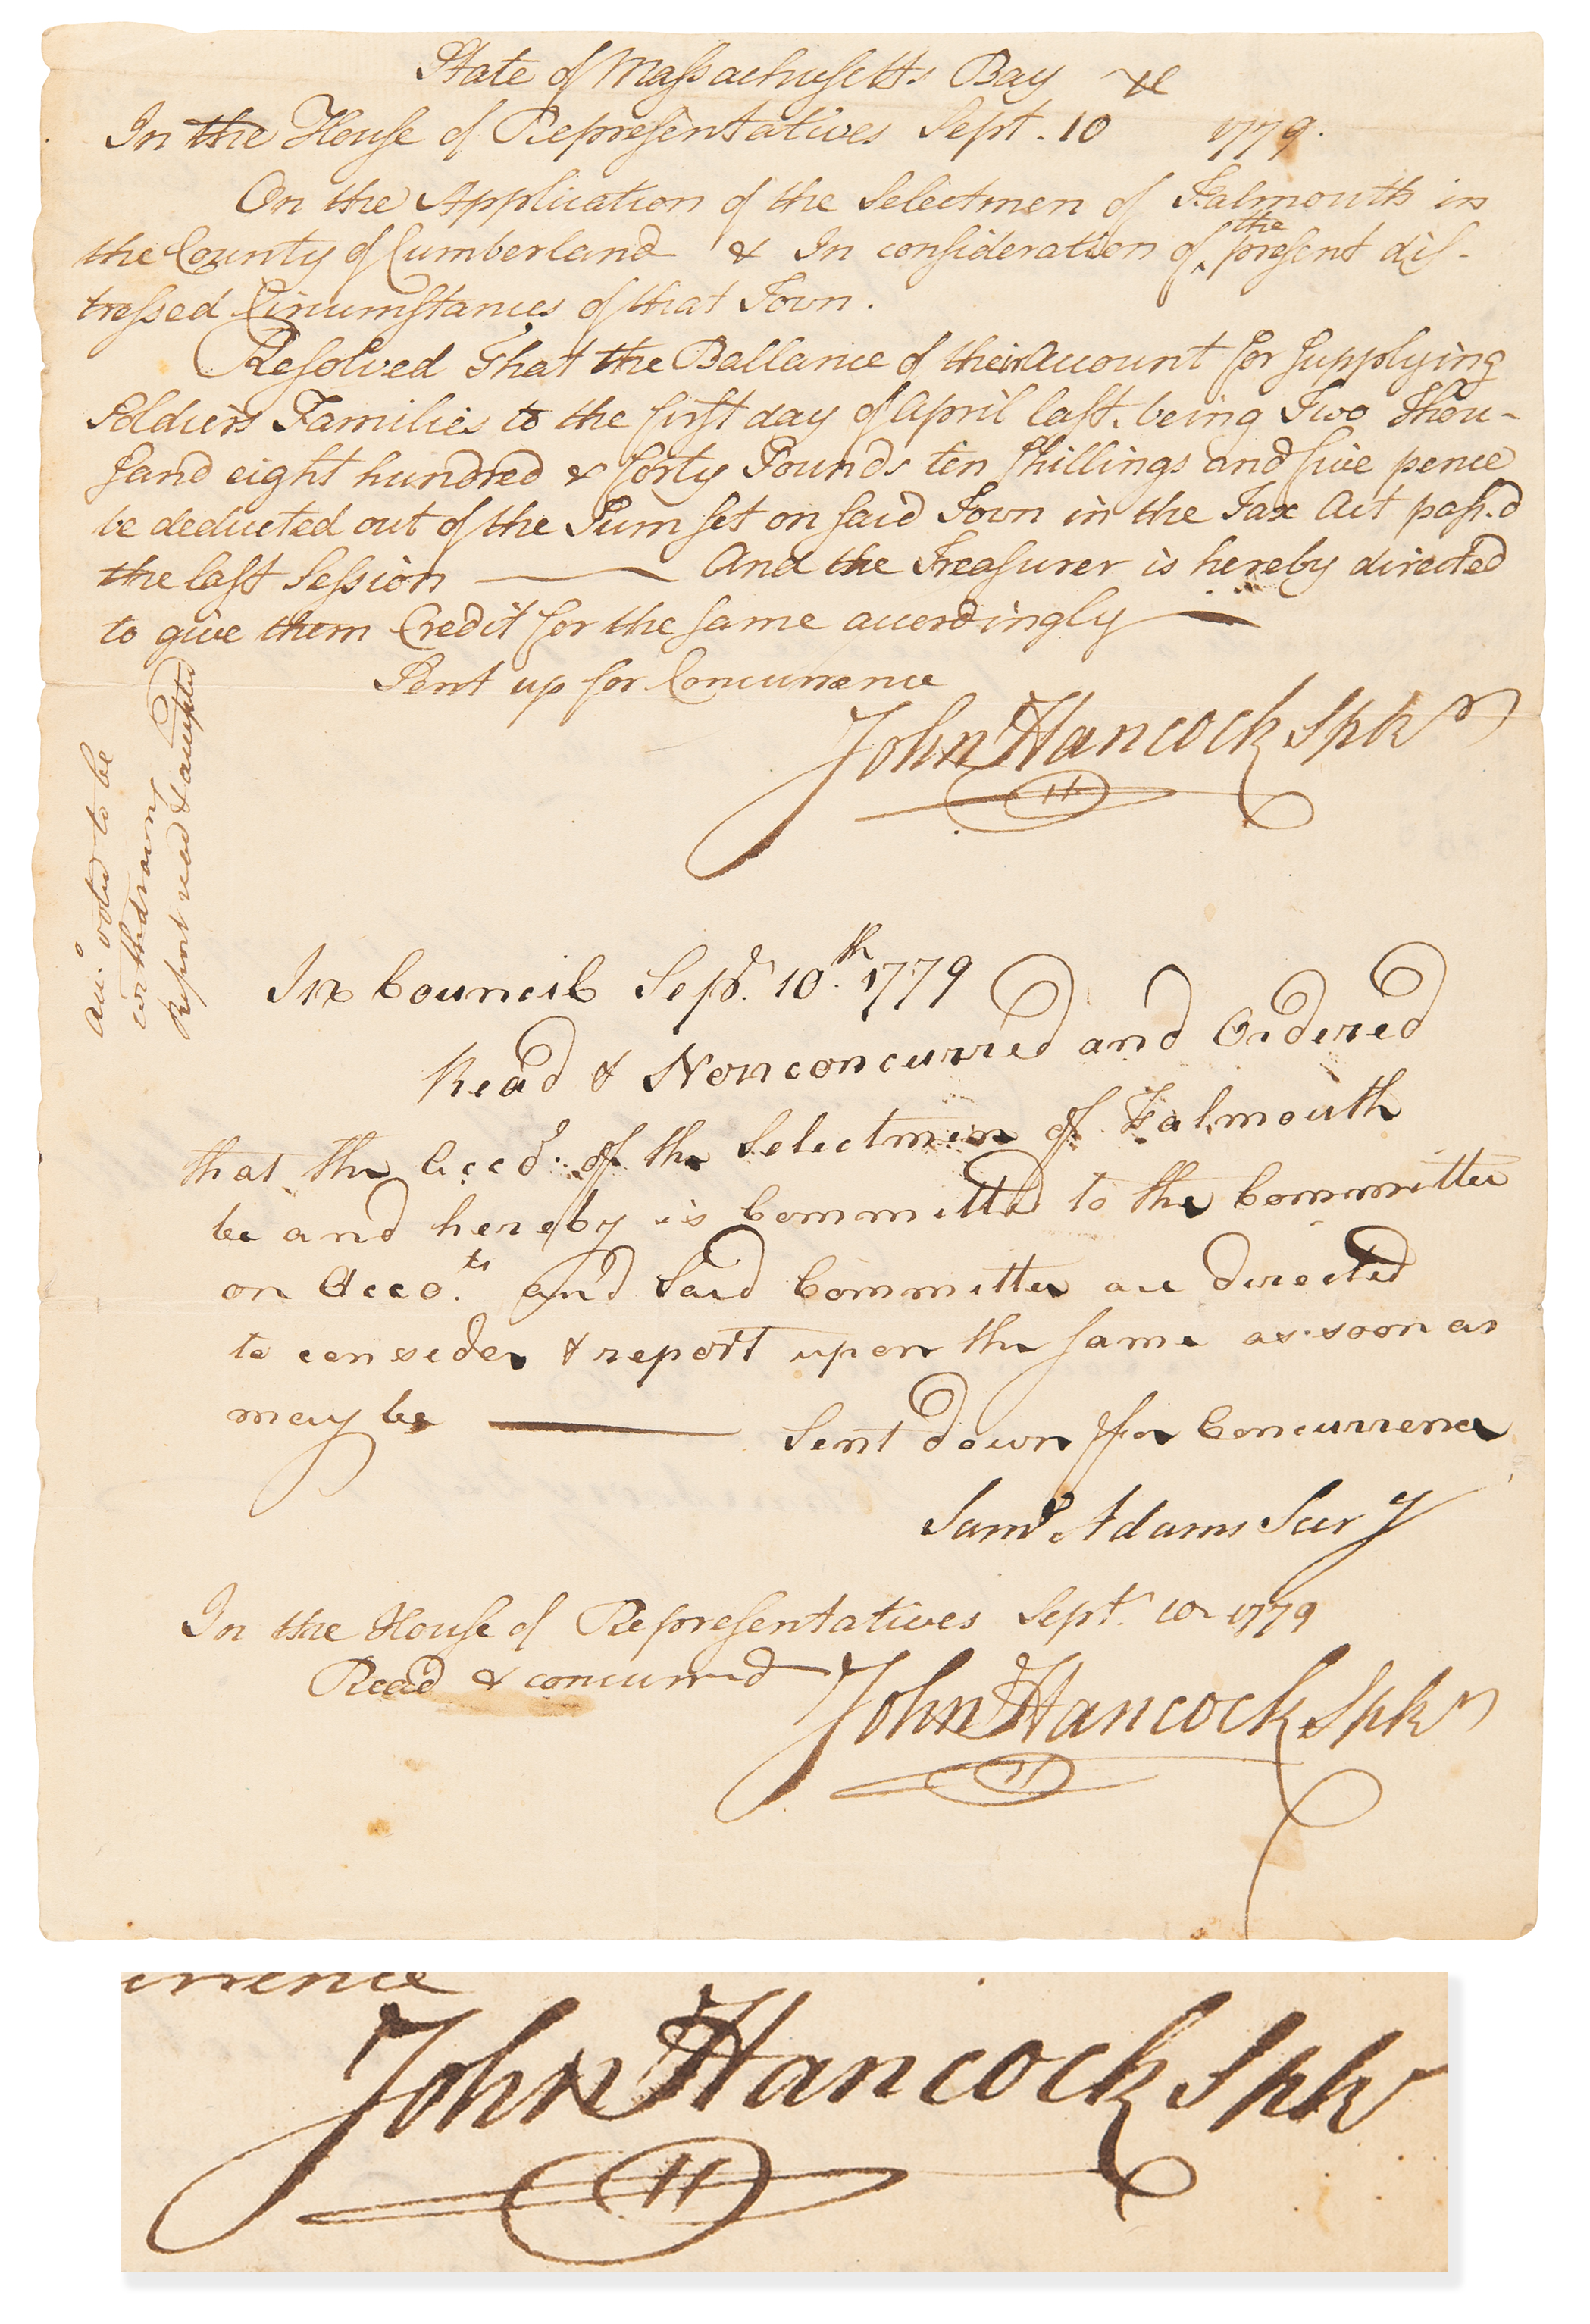 State of Massachusetts Bay &c
In the House of Representatives Sept. 10 1779.
On the Application of the Selectmen of Falmouth in
the County of Cumberland & In consideration of the present dis-
tressed Circumstances of that Town.
Resolved That the Ballance of their Account for supplying
Soldiers Families to the first day of April last. being Two Thou-
sand eight hundred & forty Pounds ten shillings and five pence
be deducted out of the Sum set on said Town in the Tax Act pass.d
the last Session —— And the Treasurer is hereby directed
to give them Credit for the same accordingly —
Sent up for Concurrence
John Hancock Spkr
voted to be
withdrawn
Report read & accepted
In Council Sepr. 10th. 1779
Read & Nonconcurred and Ordered
that the Acco. of the Selectmen of Falmouth
be and hereby is Committed to the Committee
on Acco.ts and Said Committee are directed
to consider & report upon the same as soon as
may be —— Sent down for Concurrence
Saml Adams Secry
In the House of Representatives Sept. 10. 1779
Read & concurred John Hancock Spkr
urrence
John Hancock Spkr